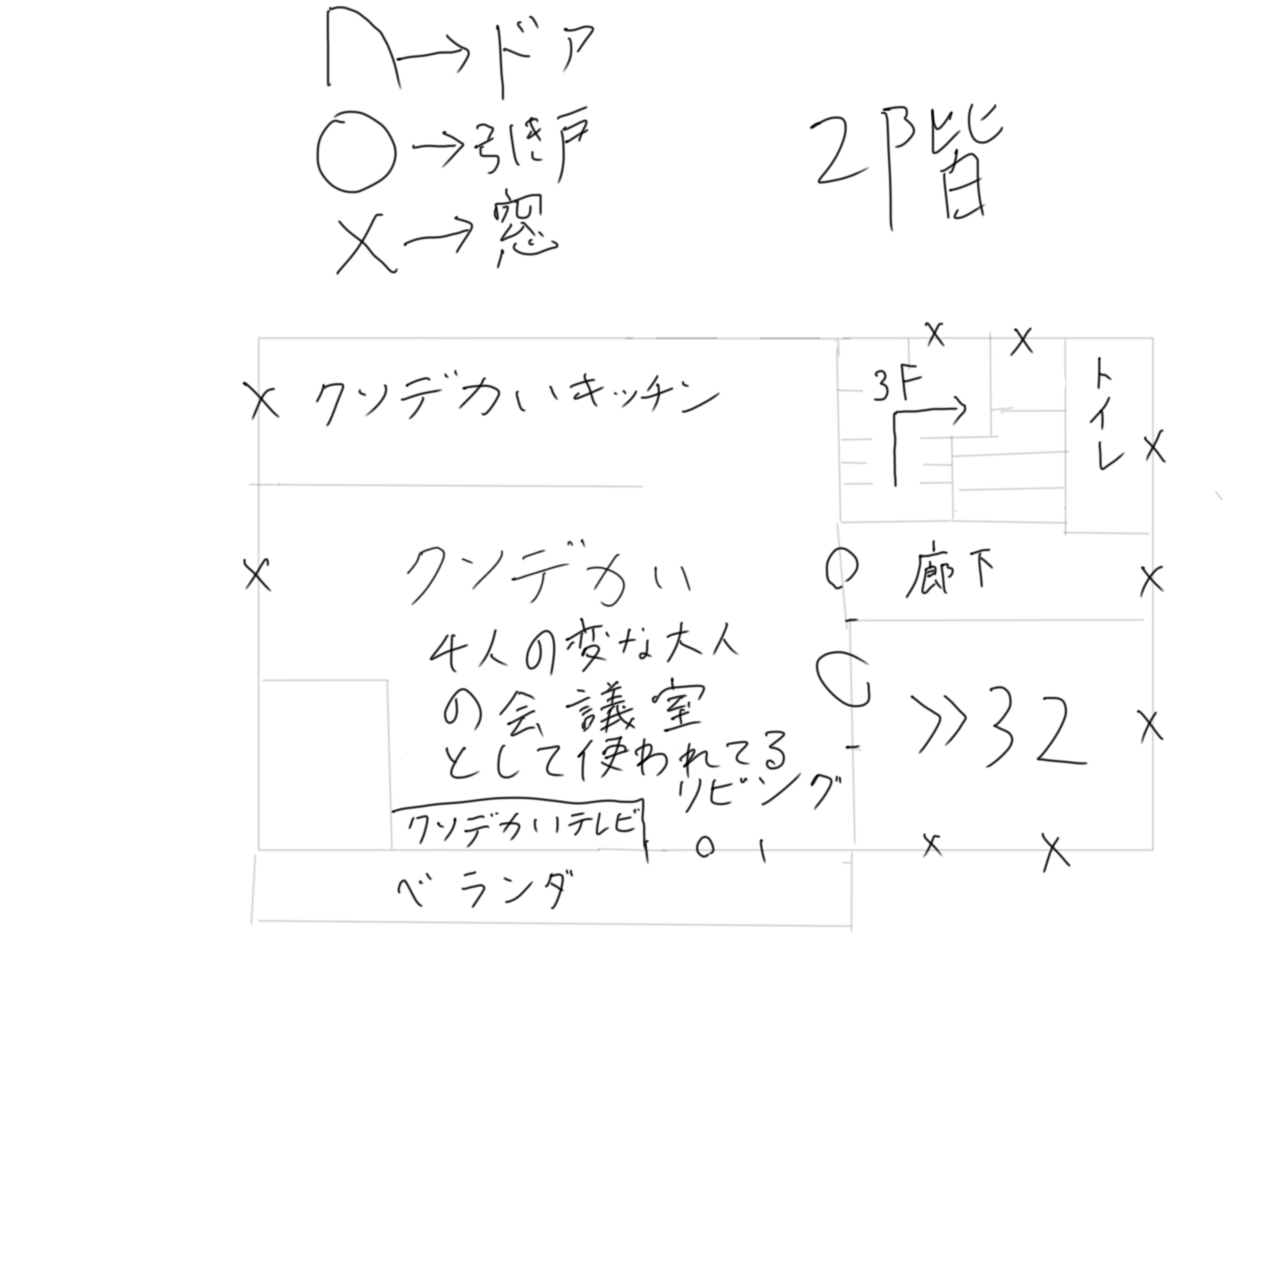 →ドア
○→引き戸
×→窓
2階
3F
トイレ
クソデカいキッチン
クソデカい
4人の変な大人
の会議室
として使われてる
リビング
廊下
>>32
クソデカいテレビ
ベランダ